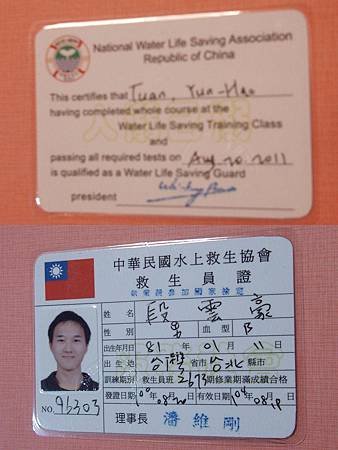 National Water Life Saving Association
Republic of China
This certifies that Tuan, Yun-Hao
having completed whole course at the
Water Life Saving Training Class
and
passing all required tests on Aug 20 2011
is qualified as a Water Life Saving Guard
president
中華民國水上救生協會
救生員證
姓名 段雲豪
性別 男 血型 B
出生年月日 81年01月11日
出生地 台灣省市台北縣市
訓練期別 救生員班2673期修業期滿成績合格
發證日期 100年08月20日 有效日期 104年08月19日
NO. 96303
理事長 潘維剛